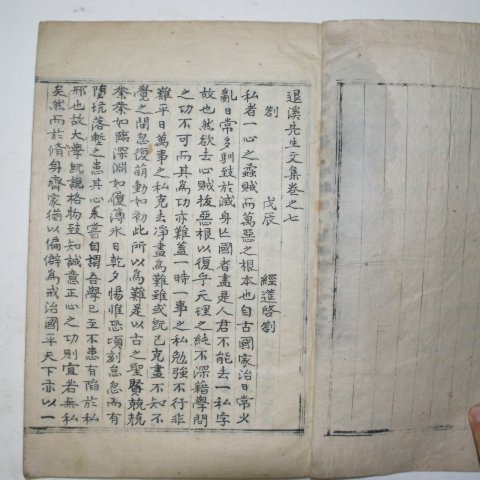 退溪先生文集卷之七
箚　戊辰　經筵啓箚
私者一心之蟊賊而萬惡之根本也自古國家治日常少
亂日常多馴致於滅身亡國者盡是人君不能去一私字
故也然欲去心賊拔惡根以復乎天理之純不深藉學問
之功不可而其爲功亦難蓋一時一事之私勉强不行非
難平日萬事之私克去淨盡爲難雖或旣已克盡不知不
覺之間忽復萌動如初此所以爲難是以古之聖賢兢兢
業業如臨深淵如履薄氷日乾夕惕惟恐頃刻怠忽而有
墮坑落塹之患其心未嘗自謂吾學已至不患有陷於私
邪也故大學旣說格物致知誠意正心之功則宜若無私
矣然而於修身齊家猶以偏僻爲戒治國平天下亦以一